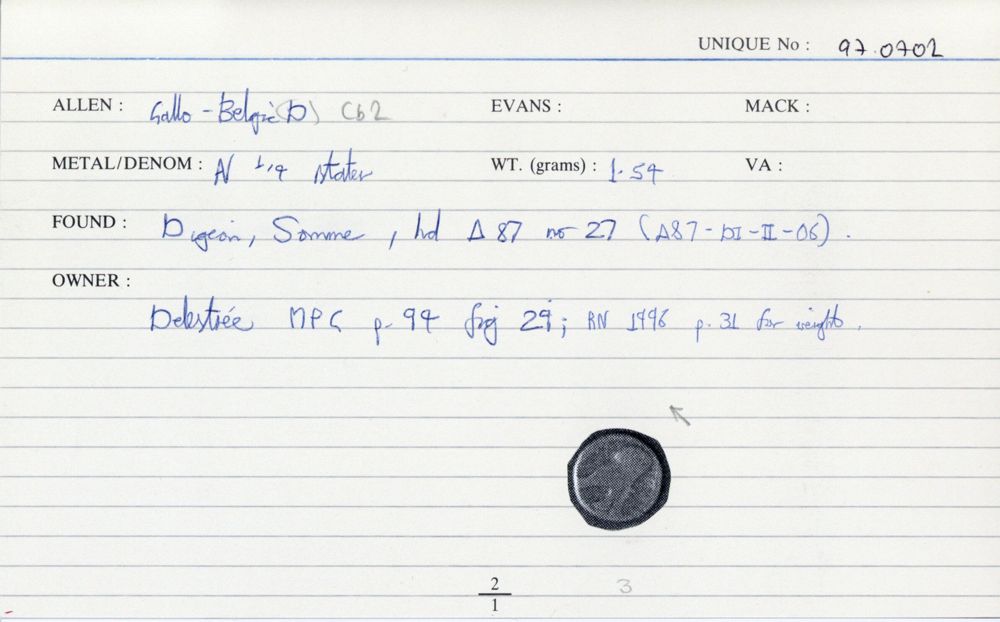 UNIQUE No : 97.0702
ALLEN : Gallo-Belgic (D) Cb2 EVANS : MACK :
METAL/DENOM : AV 1/4 stater WT. (grams) : 1.54 VA :
FOUND : Digeon, Somme, hd Δ 87 no 27 (Δ87-DI-II-06).
OWNER :
Delestrée MPG p. 94 fig 29; RN 1996 p. 31 for weight.
2
1
3